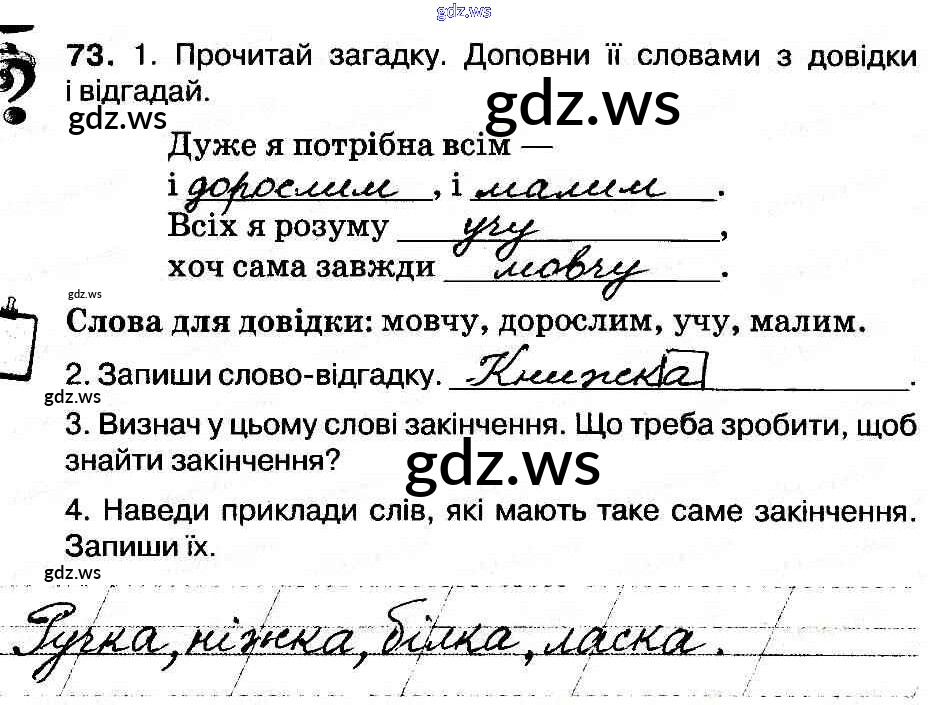 gdz.ws
73. 1. Прочитай загадку. Доповни її словами з довідки
і відгадай.
gdz.ws
gdz.ws
Дуже я потрібна всім —
і дорослим, і малим.
Всіх я розуму учу,
хоч сама завжди мовчу.
gdz.ws
Слова для довідки: мовчу, дорослим, учу, малим.
2. Запиши слово-відгадку. Книжка.
gdz.ws
3. Визнач у цьому слові закінчення. Що треба зробити, щоб
знайти закінчення?
gdz.ws
4. Наведи приклади слів, які мають таке саме закінчення.
Запиши їх.
gdz.ws
Ручка, ніжка, білка, ласка.